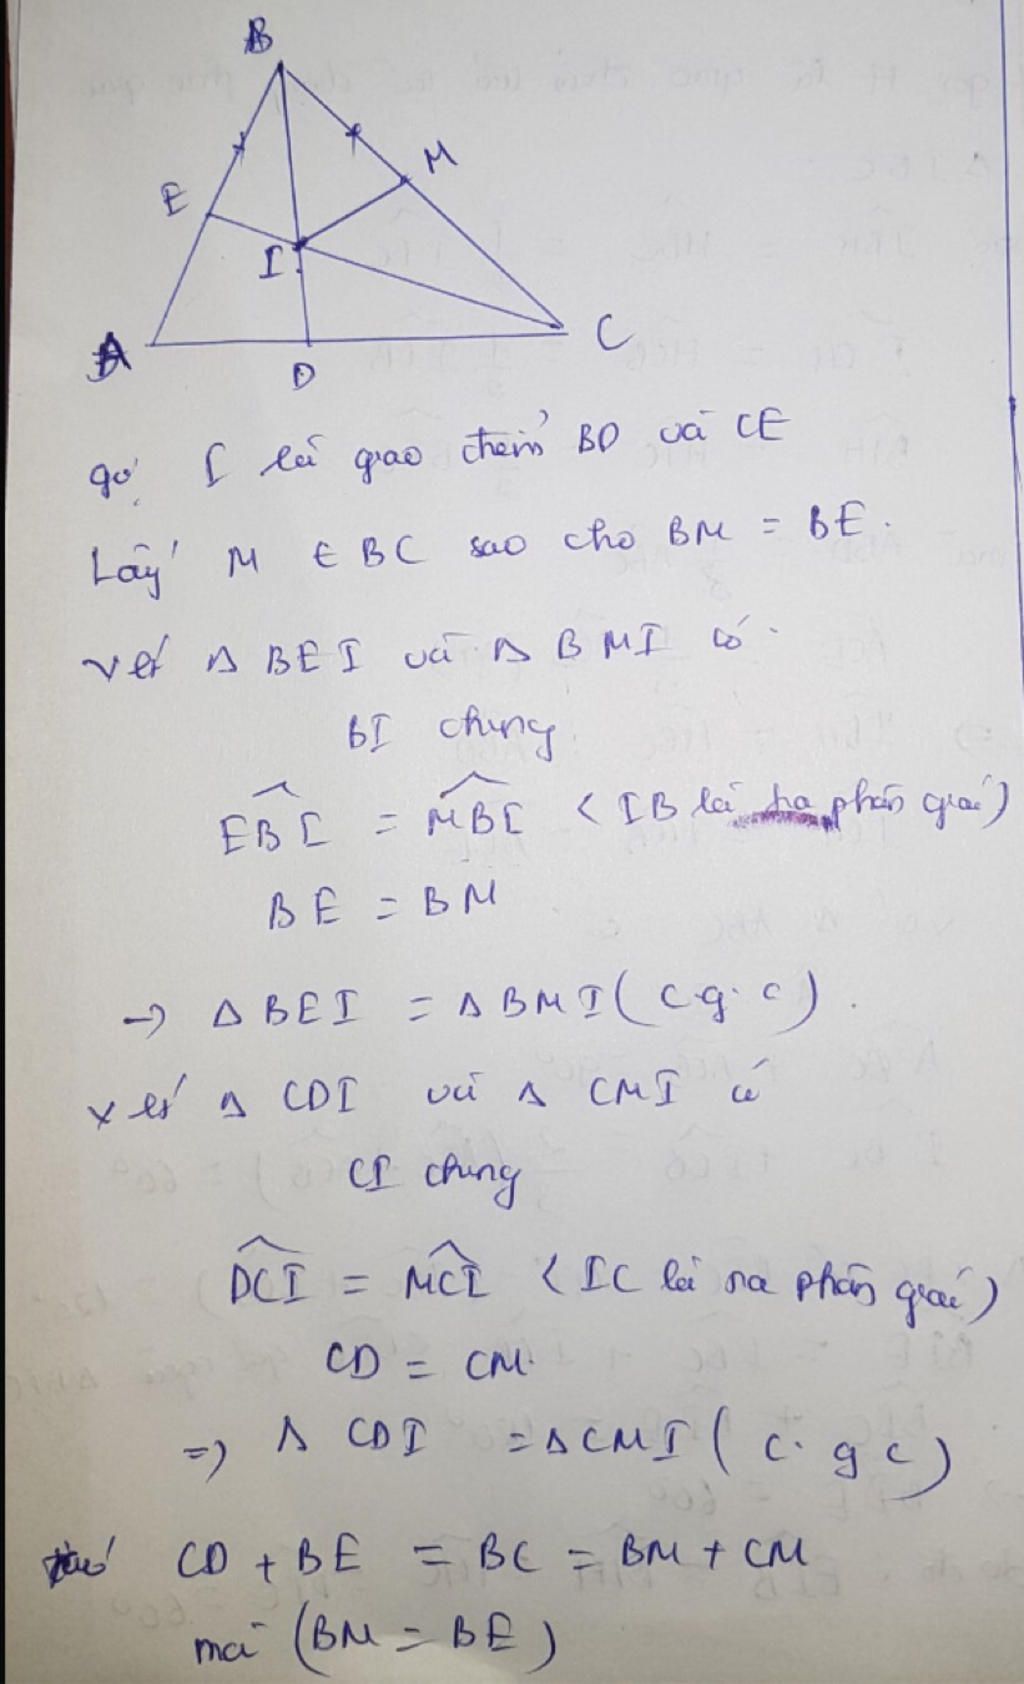 B
M
E
I
A
D
C
gọi I là giao điểm BD và CE
Lấy M ∈ BC sao cho BM = BE.
xét Δ BEI và Δ BMI có
BI chung
EBI = MBI (IB là tia phân giác)
BE = BM
→ Δ BEI = Δ BMI (c.g.c).
xét Δ CDI và Δ CMI có
CI chung
DCI = MCI (IC là tia phân giác)
CD = CM
=> Δ CDI = Δ CMI (c.g c)
CD + BE = BC = BM + CM
mà (BM = BE)